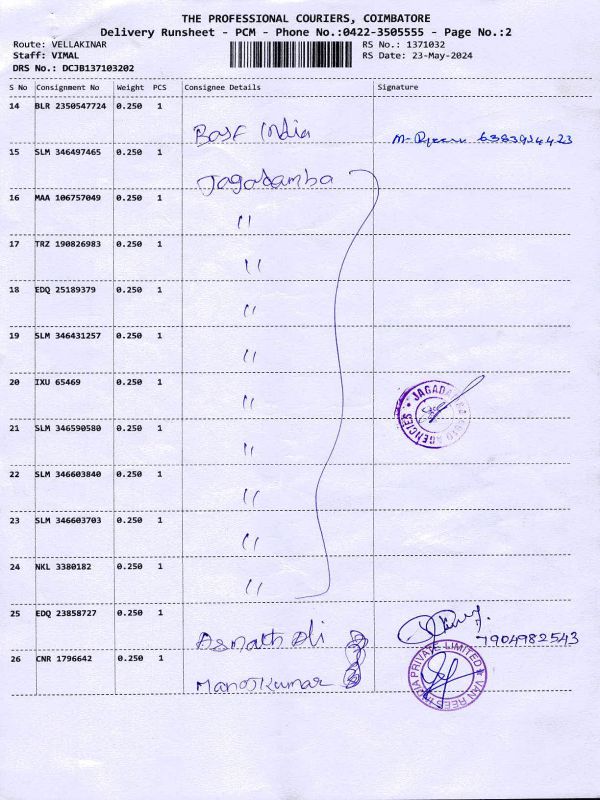 THE PROFESSIONAL COURIERS, COIMBATORE
Delivery Runsheet - PCM - Phone No.:0422-3505555 - Page No.:2
Route: VELLAKINAR
Staff: VIMAL
DRS No.: DCJB137103202
RS No.: 1371032
RS Date: 23-May-2024
S No Consignment No Weight PCS Consignee Details Signature
14 BLR 2350547724 0.250 1
Basf India 6383924423
15 SLM 346497465 0.250 1
Jagadamba
16 MAA 106757049 0.250 1
"
17 TRZ 190826983 0.250 1
"
18 EDQ 25189379 0.250 1
"
19 SLM 346431257 0.250 1
"
20 IXU 65469 0.250 1
"
21 SLM 346590580 0.250 1
"
22 SLM 346603840 0.250 1
"
23 SLM 346603703 0.250 1
"
24 NKL 3380182 0.250 1
"
25 EDQ 23858727 0.250 1
Asmath Ali 7904982543
26 CNR 1796642 0.250 1
Manojkumar
AGENCIES
VAN REES INDIA PRIVATE LIMITED